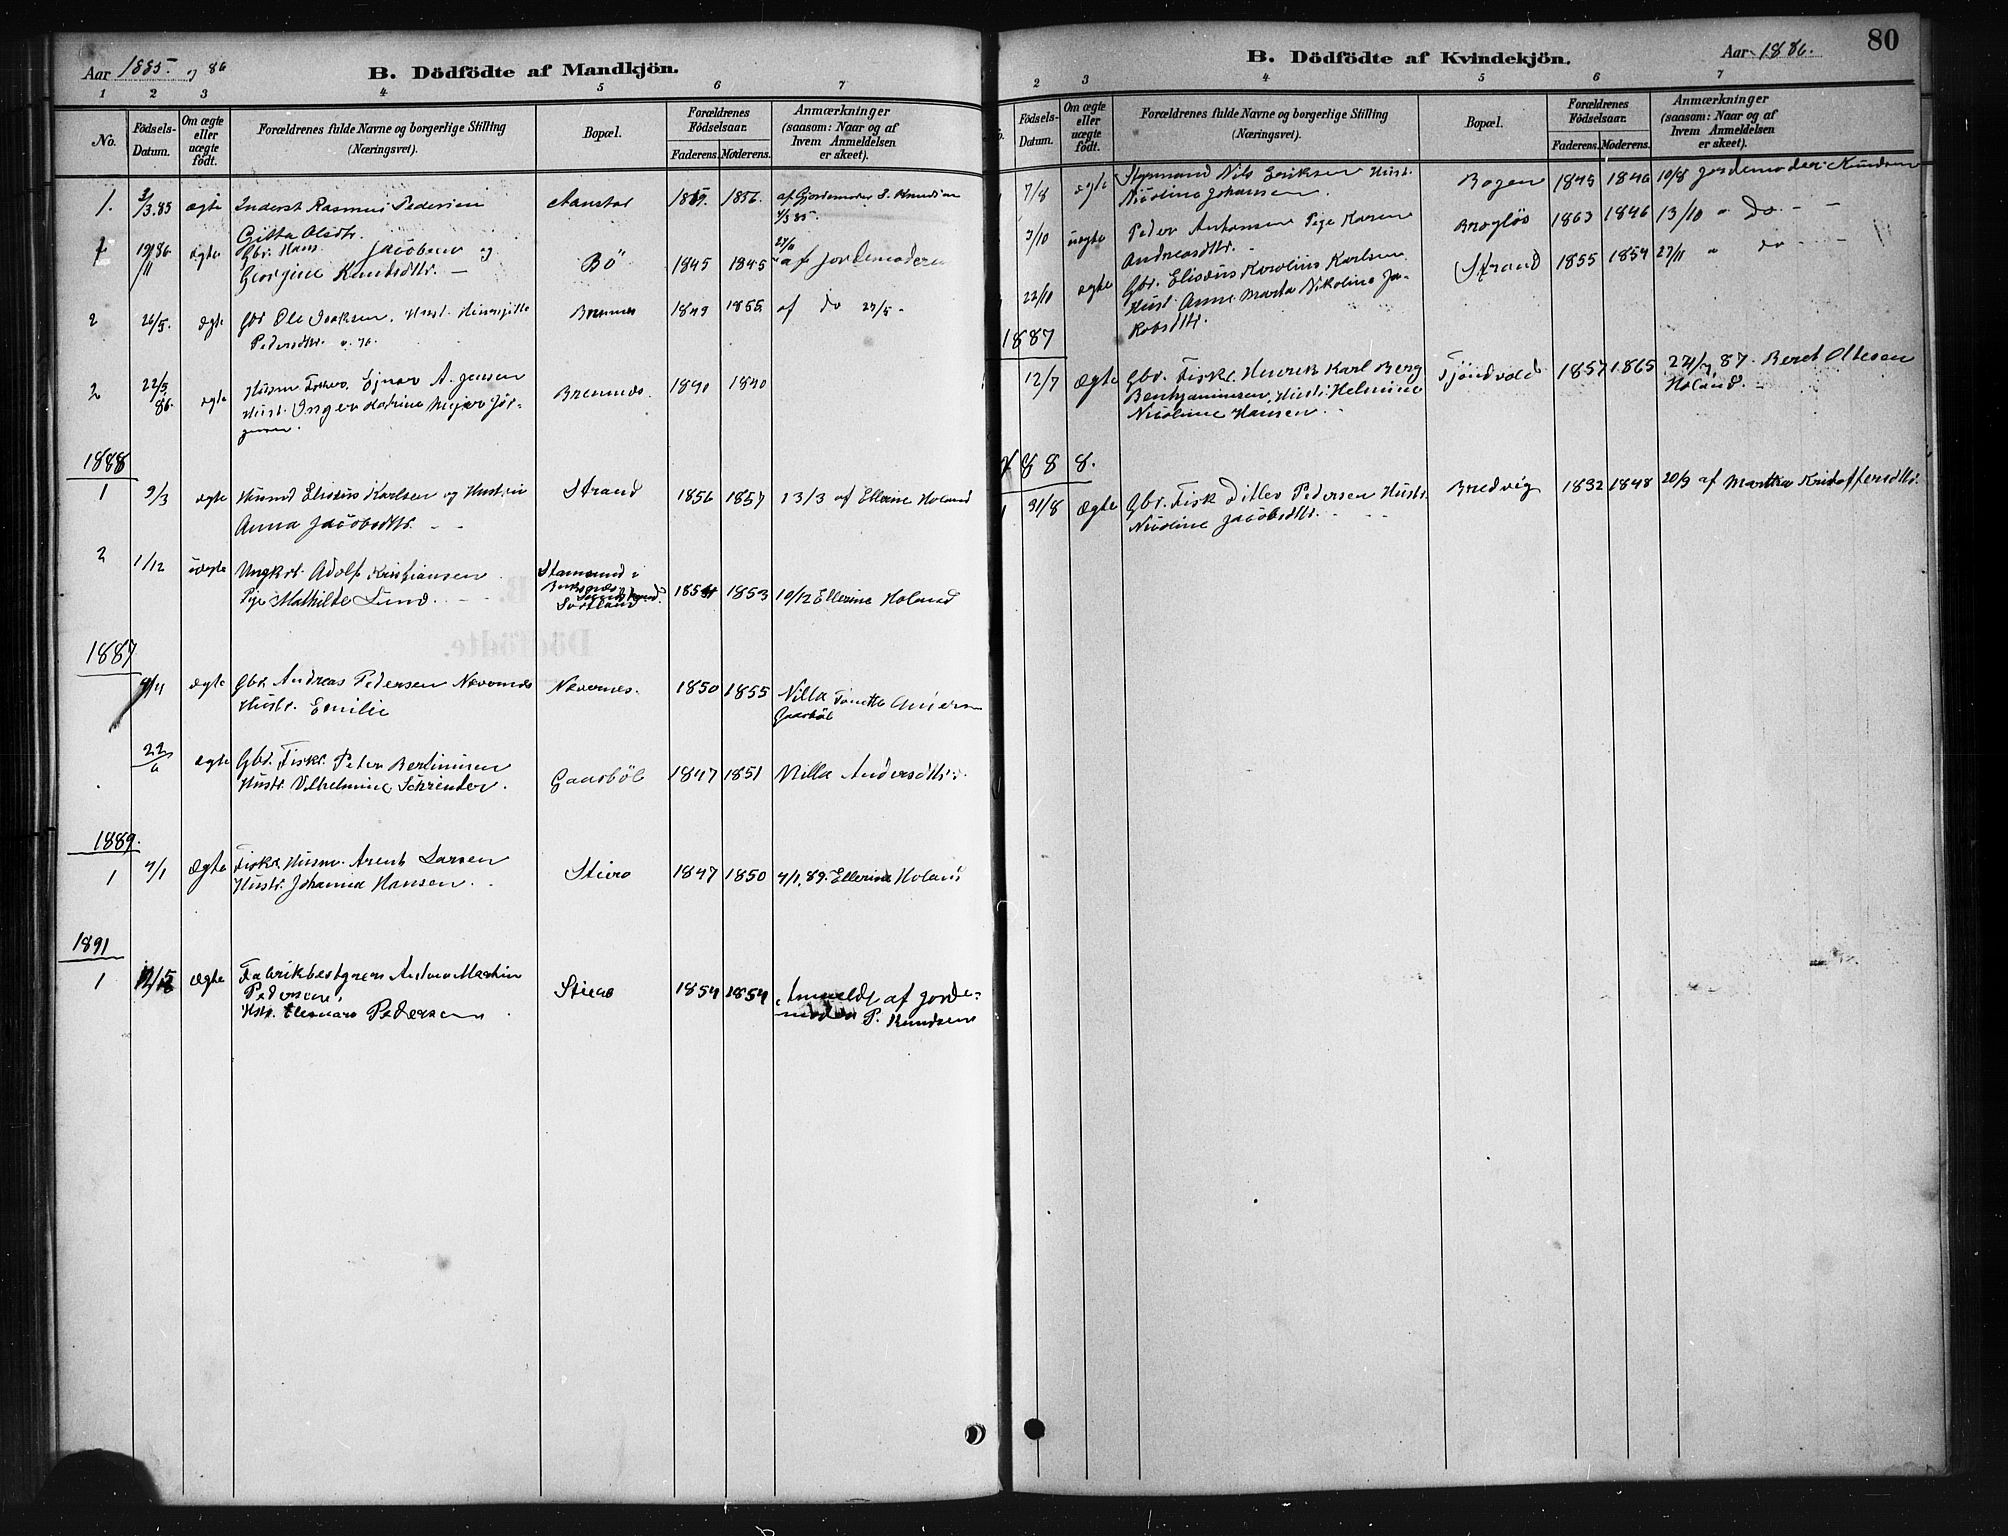 Aar 1885. og 86
B. Dödfödte af Mandkjön.
1 2 3 4 5 6 7
No.
Födsels-
Datum.
Om ægte
eller
uægte
födt.
Forældrenes fulde Navne og borgerlige Stilling
(Næringsvei).
Bopæl.
Forældrenes
Födselsaar.
Faderens. Moderens.
Anmærkninger
(saasom: Naar og af
hvem Anmeldelsen
er skeet).
1. 3/3.85 ægte Inderst Rasmus Pedersen 1856. af Gjordemoder S. Knudsen
Gitta Olsdtr.
1 ægte Gbr. Hans Jacobsen og Bö 1845 1845 af Jordemoderen
Georgine Knudsdtr. -
2 26/5. ægte Gbr Ole Isaksen. Hust. Bremnes 1849 1855 af do 27/5 -
Pedersdtr.
2 22/5 86. ægte Husm Fisker Ejnar A. Jensen Bremnes. 1840 1840
Hust. Inger Katrine Mejer Jör-
gensen.
1888
1 9/3 ægte Husmd Elisæus Karlsen og Hustru Strand 1856 1857 13/3 af Ellerine Holand
Anna Jacobsdtr. - -
2 1/12 uægte Ungkrl. Adolf Kristiansen Stamsund i
Pige Mathilde Lund. Buksnæs
Sortland 1853 10/12 Ellerine Holand
1887
ægte Gbr. Andreas Pedersen Nævernes Nævernes. 1850 1855 Nilla
Hustr. Emilie Gaasböl
22/6 ægte Gbr. Fisk. Peter Gaasböl 1847 1851 Nilla Andersdtr.
Hustr. Vilhelmine Schrender.
1889.
1 4/1 Ægte Fisker Husm. Arent Larsen Stiero 1847 1850 4/1. 89. Ellerine Holand
Hustr. Johanna Hansen.
1891
1 ægte Fabrikbestyrer Anton Martin Stiero 1854 1854 Anmeldt af Jorde-
Pedersen, moder P. Knudsen
Hstr. Eleonara Pedersen
B. Dödfödte af Kvindekjön.
Aar 1886. 80
2 3 4 5 6 7
Födsels-
Datum.
Om ægte
eller
uægte
födt.
Forældrenes fulde Navne og borgerlige Stilling
(Næringsvei).
Bopæl.
Forældrenes
Födselsaar.
Faderens. Moderens.
Anmærkninger
(saasom: Naar og af
hvem Anmeldelsen
er skeet).
7/8 ægte Styrmand Nils Eriksen Hust. Bogen 1845 1846 10/8 Jordemoder Knudsen
Nicoline Johansen.
3/10 uægte Peder Antonsen Pige Karen Brogløs 1863 1846 13/10 " Do - -
Andreasdtr. -
22/11 ægte Gbr. Elisæus Karolius Karlsen Strand 1855 1854 27/11 " do - -
Hust. Anne Marta Nikoline Ja-
kobsdtr.
1887
12/7 Ægte Gbr. Fisk. Henrik Karl Berg Tjöndvold 1857 1865 87. Beret Ottesen
Benhjaminsen, Hust. Helmine Holand.
Nicoline Hansen
1888.
31/8 Ægte Gbr. Fisk Ditlev Pedersen Hustr. Bredvig 1832 1848 20/9 af Martha Kristoffersdtr.
Nicoline Jacobsdtr.